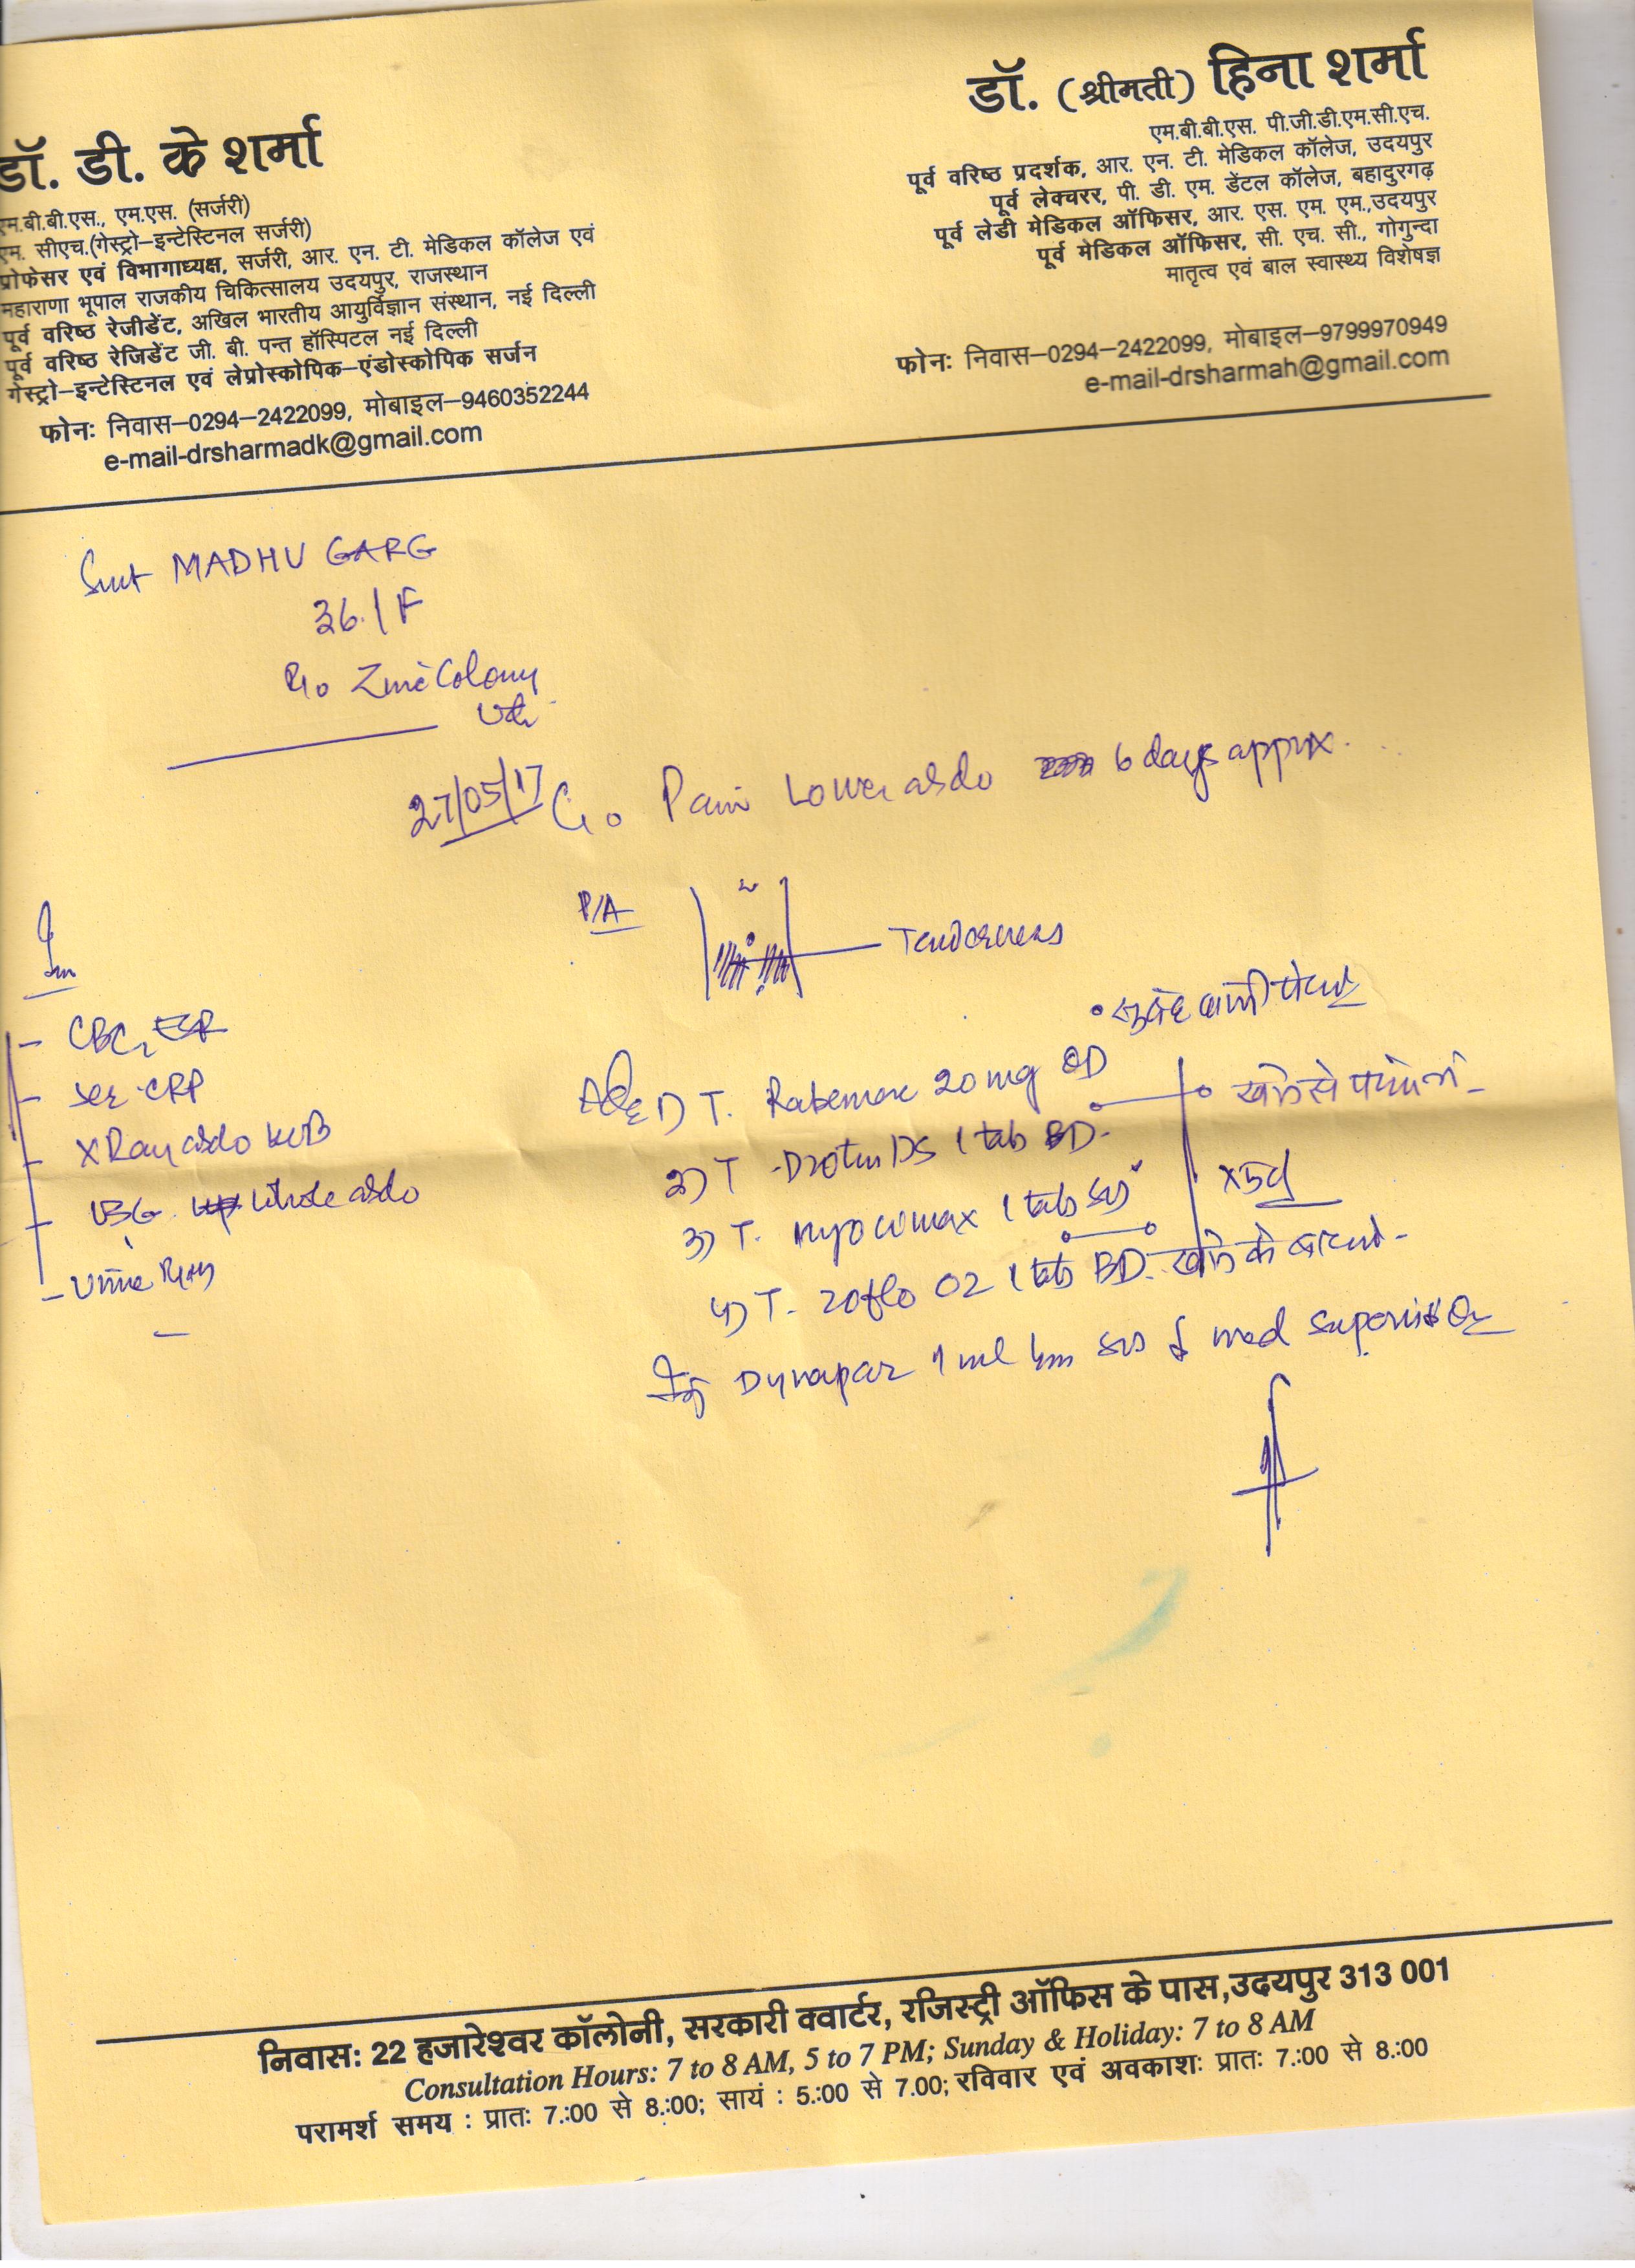 डॉ. डी. के शर्मा
एम.बी.बी.एस., एम.एस. (सर्जरी)
एम. सीएच.(गेस्ट्रो–इन्टेस्टिनल सर्जरी)
प्रोफेसर एवं विभागाध्यक्ष, सर्जरी, आर. एन. टी. मेडिकल कॉलेज एवं
महाराणा भूपाल राजकीय चिकित्सालय उदयपुर, राजस्थान
पूर्व वरिष्ठ रेजीडेंट, अखिल भारतीय आयुर्विज्ञान संस्थान, नई दिल्ली
पूर्व वरिष्ठ रेजिडेंट जी. बी. पन्त हॉस्पिटल नई दिल्ली
गेस्ट्रो–इन्टेस्टिनल एवं लेप्रोस्कोपिक–एंडोस्कोपिक सर्जन
फोनः निवास–0294–2422099, मोबाइल–9460352244
e-mail-drsharmadk@gmail.com
डॉ. (श्रीमती) हिना शर्मा
एम.बी.बी.एस. पी.जी.डी.एम.सी.एच.
पूर्व वरिष्ठ प्रदर्शक, आर. एन. टी. मेडिकल कॉलेज, उदयपुर
पूर्व लेक्चरर, पी. डी. एम. डेंटल कॉलेज, बहादुरगढ़
पूर्व लेडी मेडिकल ऑफिसर, आर. एस. एम. एम.,उदयपुर
पूर्व मेडिकल ऑफिसर, सी. एच. सी., गोगुन्दा
मातृत्व एवं बाल स्वास्थ्य विशेषज्ञ
फोनः निवास–0294–2422099, मोबाइल–9799970949
e-mail-drsharmah@gmail.com
Smt MADHU GARG
36 / F
R/o Zinc Colony
Udr
27/05/17 C/o Pain Lower abdo 6 days apprx.
P/A
Tenderness
CBC, ESR
Ser CRP
X Ray abdo KUB
USG whole abdo
Urine R/M
Adv 1) T. Rabemac 20 mg OD
• सुबह खाली पेट
2) T. Drotin DS 1 tab BD
खाने से पहले
3) T. Myocomax 1 tab SOS
x5d
4) T. Zoflo OZ 1 tab BD. खाने के बाद
Inj Dynapar 1 ml Im SOS med supervision
निवासः 22 हजारेश्वर कॉलोनी, सरकारी क्वार्टर, रजिस्ट्री ऑफिस के पास,उदयपुर 313 001
Consultation Hours: 7 to 8 AM, 5 to 7 PM; Sunday & Holiday: 7 to 8 AM
परामर्श समय : प्रातः 7.:00 से 8.:00; सायं : 5.:00 से 7.00; रविवार एवं अवकाशः प्रातः 7.:00 से 8.:00